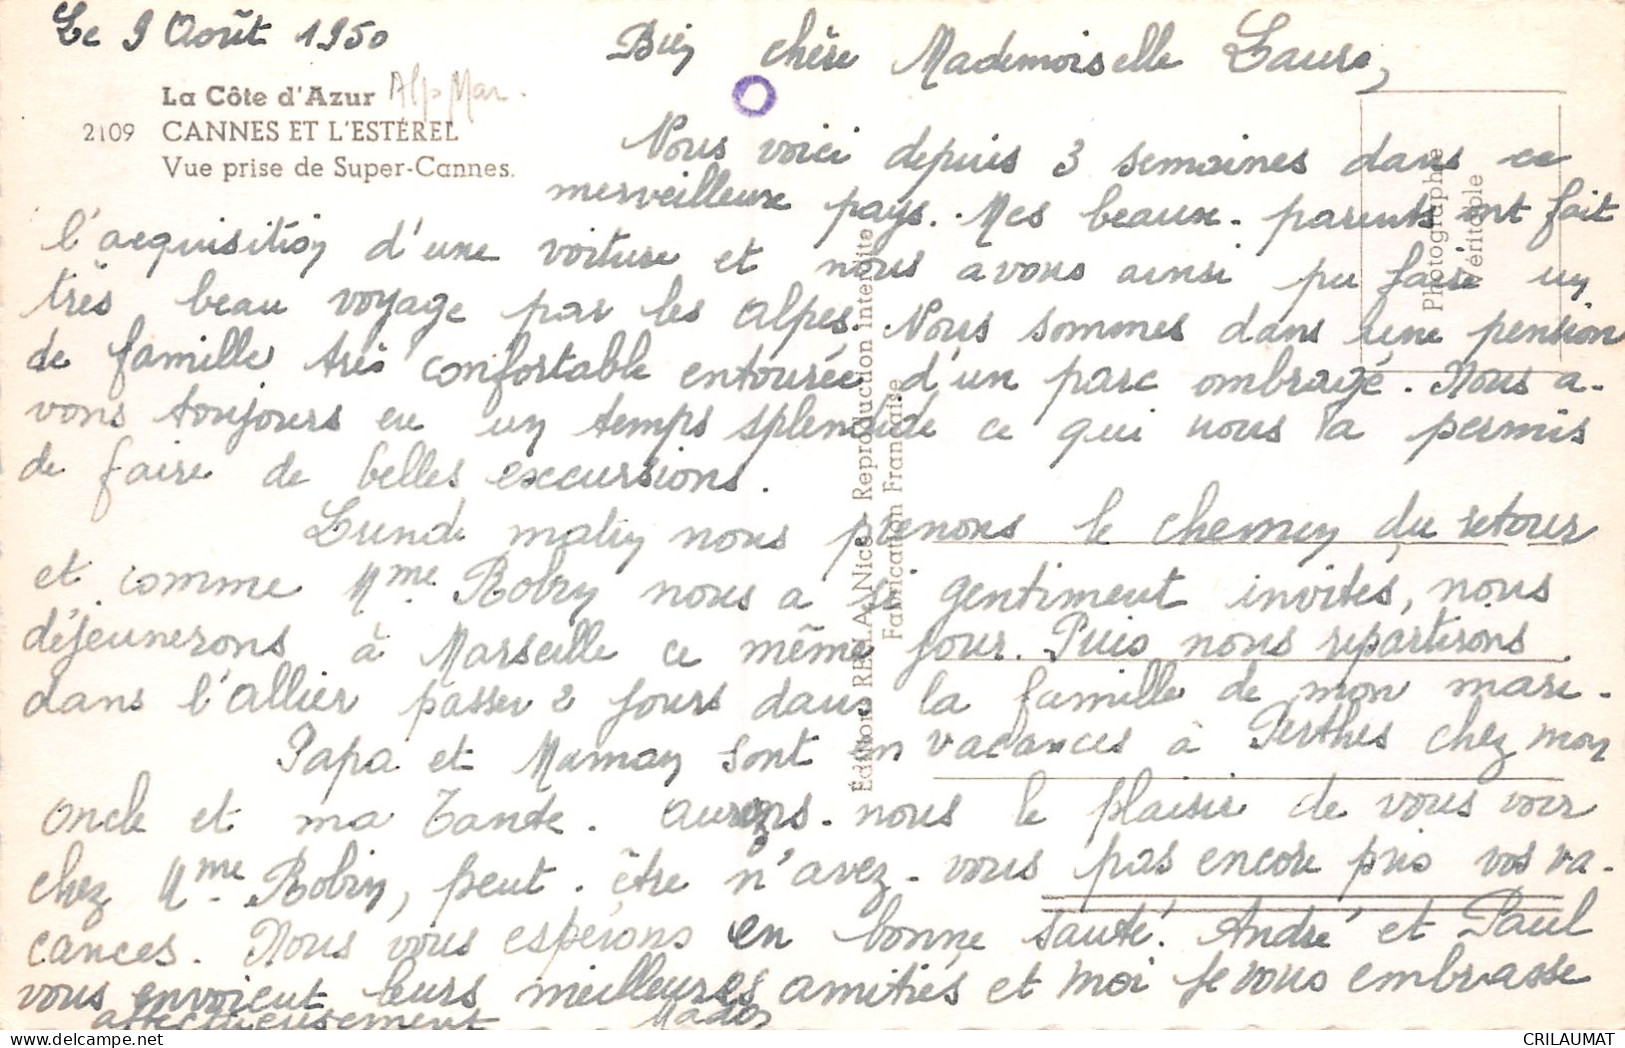 Le 9 Août 1950
La Côte d'Azur Alp Mar.
2109 CANNES ET L'ESTÉREL
Vue prise de Super-Cannes.
Bien chère Mademoiselle Laure,
Nous voici depuis 3 semaines dans ce
merveilleux pays. Mes beaux-parents ont fait
l'acquisition d'une voiture et nous avons ainsi pu faire un
très beau voyage par les Alpes. Nous sommes dans une pension
de famille très confortable entourée d'un parc ombragé. Nous a-
vons toujours eu un temps splendide ce qui nous a permis
de faire de belles excursions.
Lundi matin nous prenons le chemin du retour
et comme Mme Robin nous a si gentiment invités, nous
déjeunerons à Marseille ce même jour. Puis nous repartirons
dans l'Allier passer 2 jours dans la famille de mon mari.
Papa et Maman sont en vacances à Perthes chez mon
oncle et ma Tante. Aurons-nous le plaisir de vous voir
chez Mme Robin, peut-être n'avez-vous pas encore pris vos va-
cances. Nous vous espérons en bonne santé. André et Paul
vous envoient leurs meilleures amitiés et moi je vous embrasse
affectueusement Mado
Édition RELLA, Nice - Reproduction interdite
Fabrication Française
Photographie
Véritable
CRILAUMAT